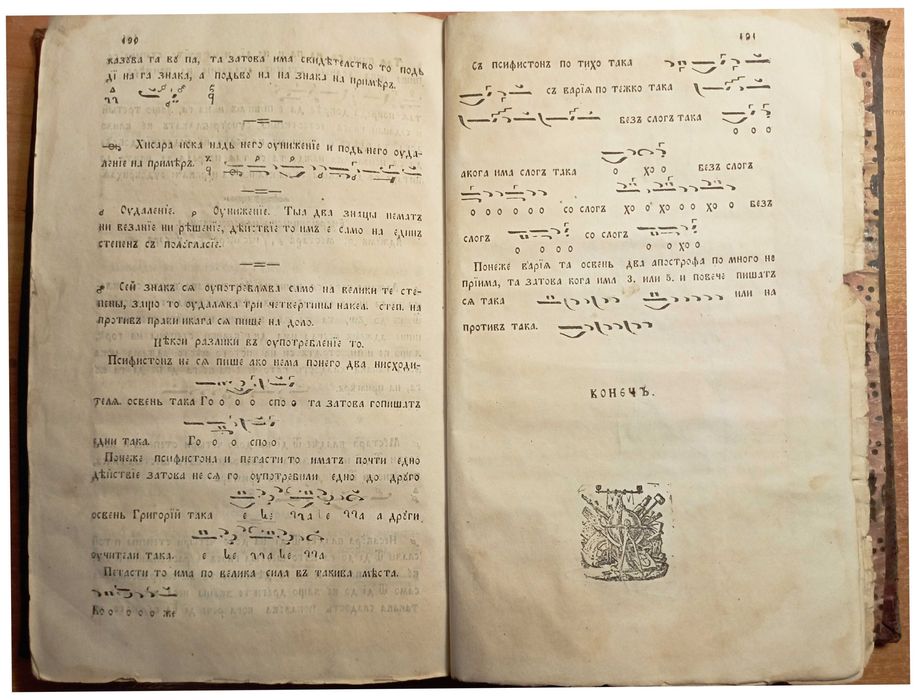 190
казува га ву па, та затова има свидѣтелство то подъ
ді на га знака, а подъву на па знака на примѣръ.
Хисара иска надъ него оунижение и подь него оуда-
ление на примѣръ.
Оудаление. Оунижение. Тыа два знацы немать
ни везание ни рѣшение, дѣйствіе то имъ е само на единъ
степенъ съ пологласіе.
Сей знакъ ся оупотреблява само на велики те сте-
пены, защо то оудалява три четвертины накел. степ. на
противъ праки никага ся пише на доло.
Нѣкои разлики въ оупотребление то.
Псифистонъ не ся пише ако нема понего два нисходи-
теля. освенъ така Го о о о спо о та затова гопишатъ
едни така. Го о о о спо о
Понеже псифистона и петасти то иматъ почти едно
дѣйствіе затова не ся го оупотребили едно до друго
освенъ Григорій така а други
оучители така.
Петасти то има по велика сила въ такива мѣста.
Во о о о о же
191
Съ псифистонъ по тихо така
съ варіа по тежко така
безъ слогъ така
о о о
акога има слогъ така о хо о безъ слогъ
о о о о о о со слогъ хо о хо о о хо о безъ
слогъ о о о о со слогъ о о хо о
Понеже варіа та освенъ два апострофа по много не
пріима, та затова кога има 3. или 5. и повече пишатъ
ся така или на
противъ така.
КОНЕЧЪ.